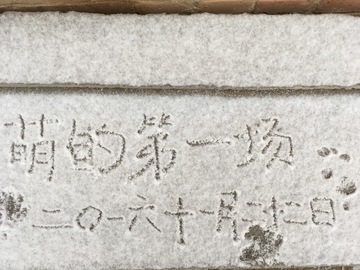 萌的第一场
二〇一六十一月二十二日